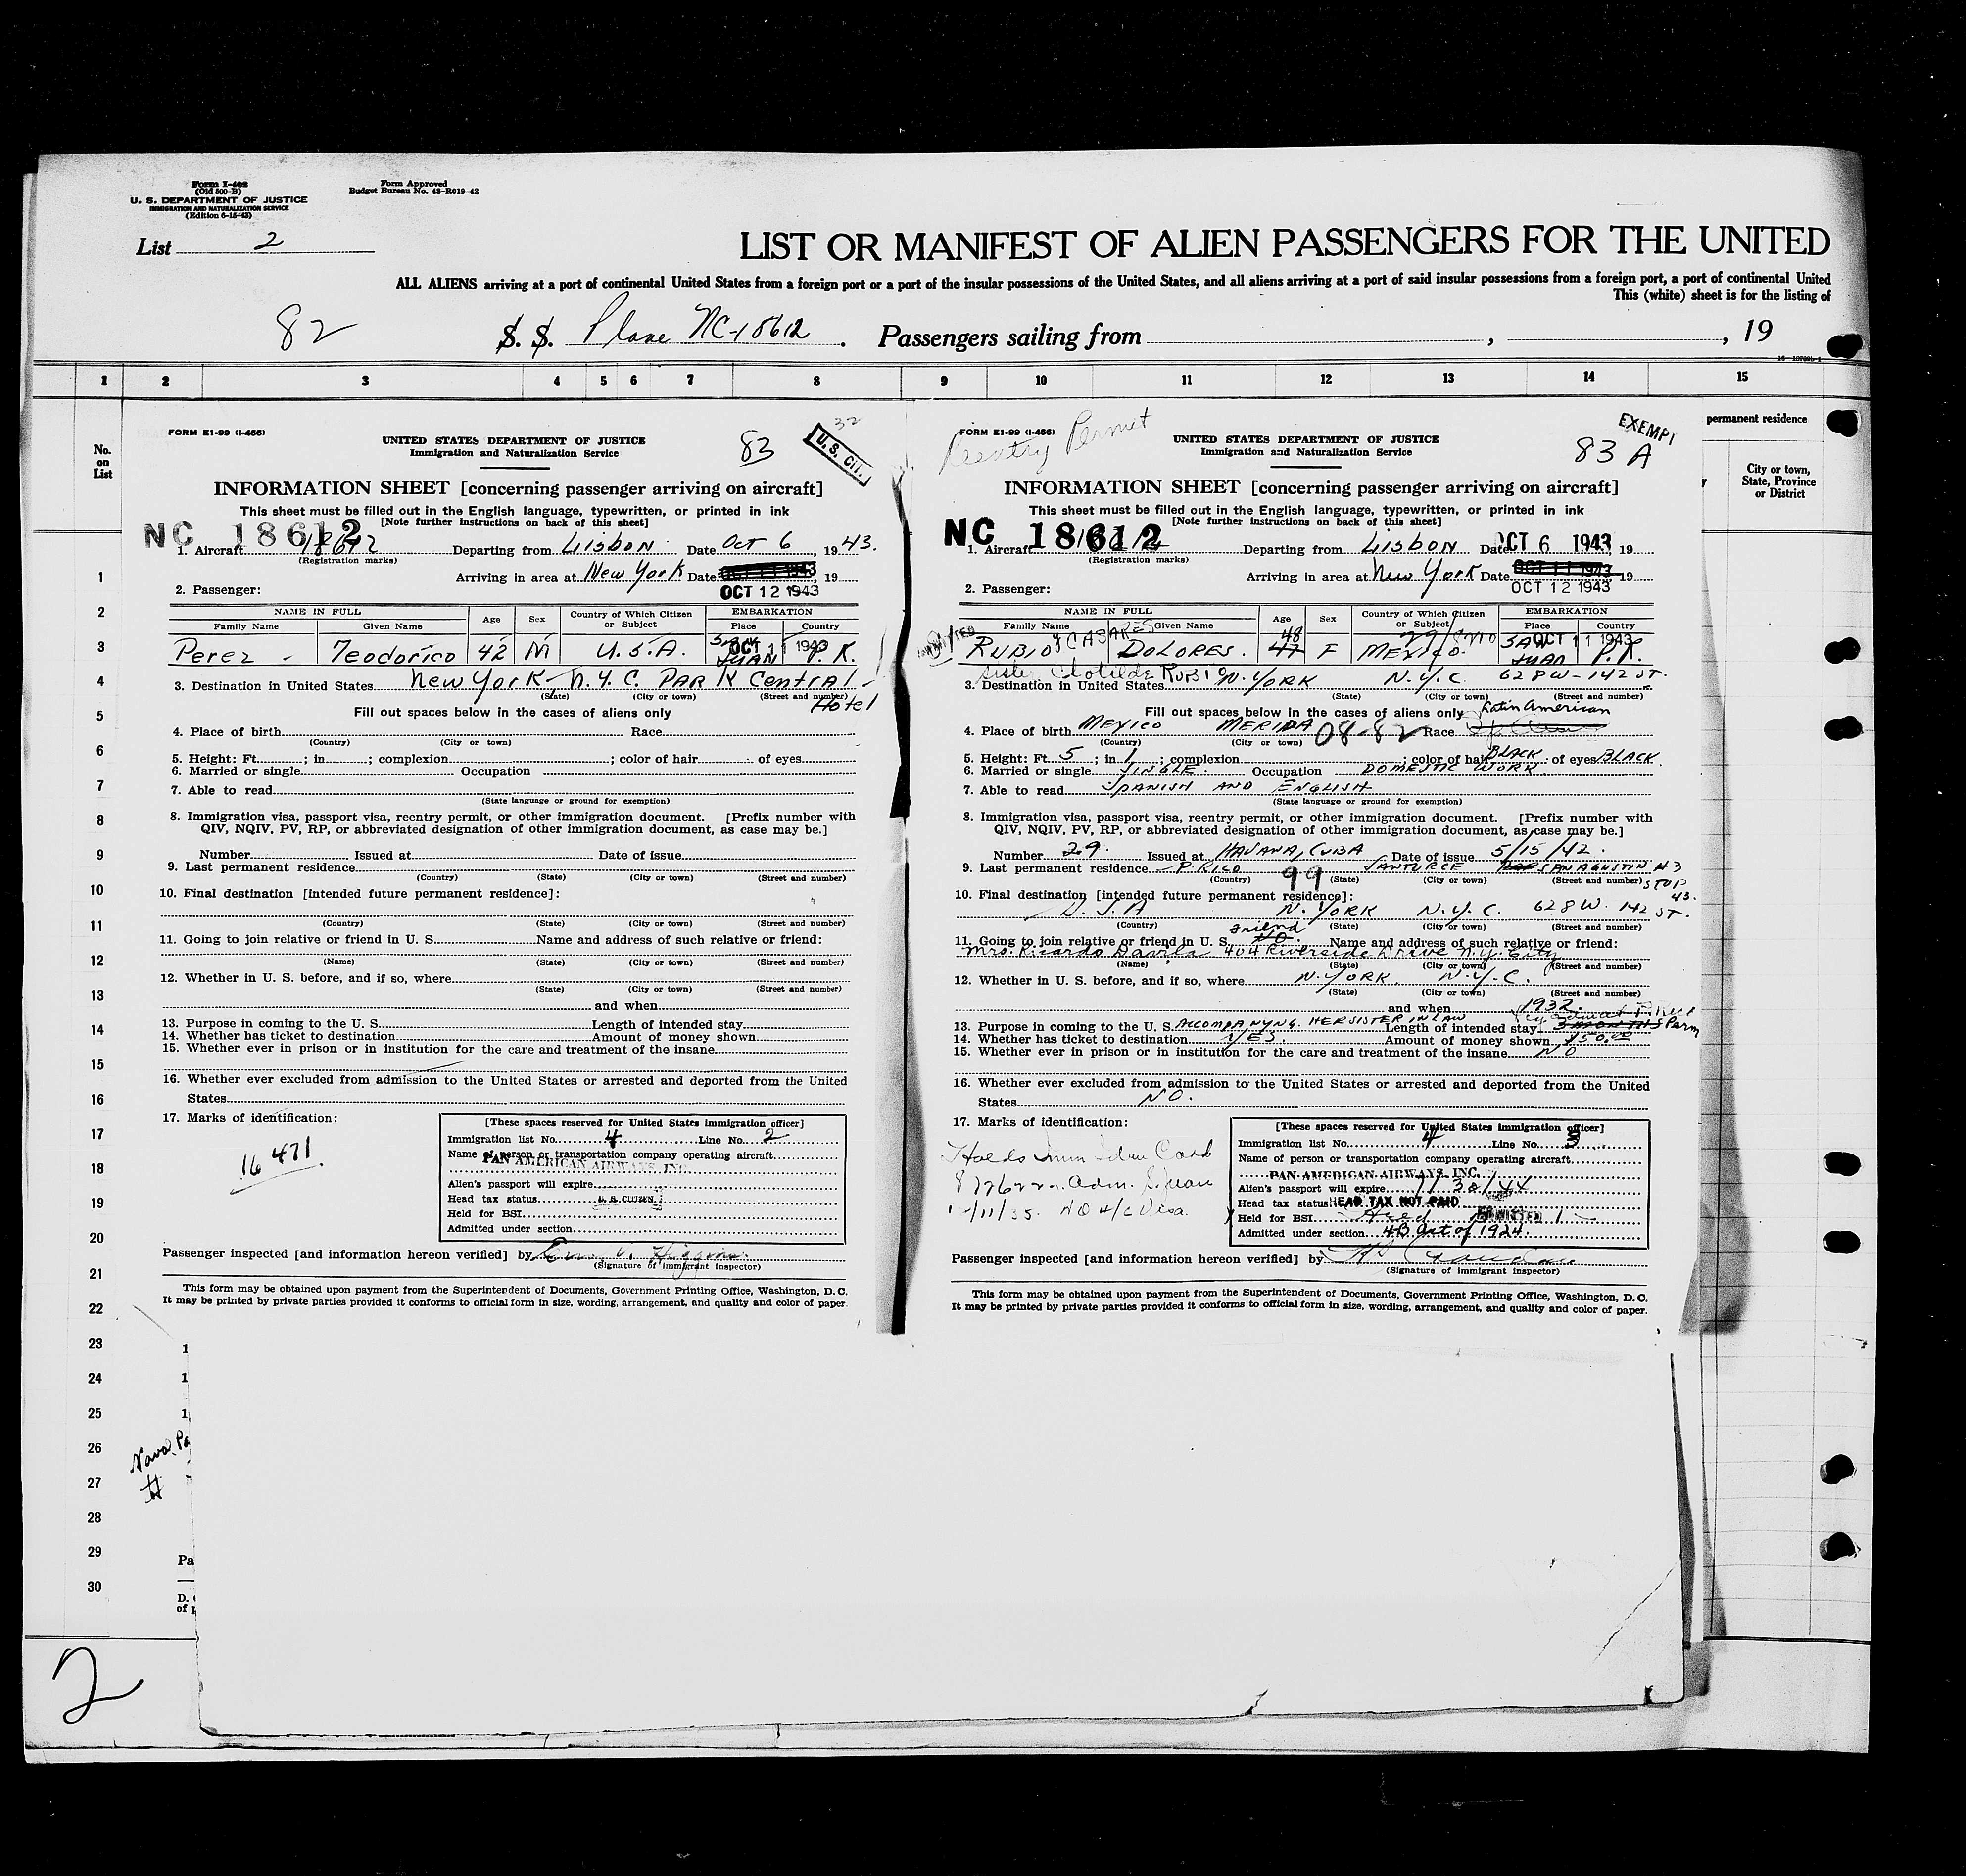 Form I-402
(Old 500-B)
U. S. DEPARTMENT OF JUSTICE
IMMIGRATION AND NATURALIZATION SERVICE
(Edition 6-15-43)
Form Approved
Budget Bureau No. 43-R019-42
List 2
LIST OR MANIFEST OF ALIEN PASSENGERS FOR THE UNITED
ALL ALIENS arriving at a port of continental United States from a foreign port or a port of the insular possessions of the United States, and all aliens arriving at a port of said insular possessions from a foreign port, a port of continental United
This (white) sheet is for the listing of
82 S. S. Plane NC-18612. Passengers sailing from , , 19
1 2 3 4 5 6 7 8 9 10 11 12 13 14 15
No. on List
permanent residence
City or town, State, Province or District
1
2
3
4
5
6
7
8
9
10
11
12
13
14
15
16
17
18
19
20
21
22
23
24
25
26
27
28
29
30
FORM E1-99 (I-466)
32
83
U. S. CIT.
UNITED STATES DEPARTMENT OF JUSTICE
Immigration and Naturalization Service
INFORMATION SHEET [concerning passenger arriving on aircraft]
This sheet must be filled out in the English language, typewritten, or printed in ink
[Note further instructions on back of this sheet]
NC 18612
1. Aircraft 18612 Departing from LISBON Date Oct 6, 1943.
(Registration marks)
Arriving in area at New York Date OCT 11 1943, 19
2. Passenger: OCT 12 1943
NAME IN FULL Age Sex Country of Which Citizen or Subject EMBARKATION
Family Name Given Name Place Country
Perez - Teodorico 42 M U.S.A. SAN JUAN OCT 11 1943 P.R.
3. Destination in United States New York - N.Y.C. PARK Central - Hotel
(State) (City or town) (Street and number)
Fill out spaces below in the cases of aliens only
4. Place of birth Race
(Country) (City or town)
5. Height: Ft. ; in ; complexion ; color of hair of eyes
6. Married or single Occupation
7. Able to read
(State language or ground for exemption)
8. Immigration visa, passport visa, reentry permit, or other immigration document. [Prefix number with
QIV, NQIV, PV, RP, or abbreviated designation of other immigration document, as case may be.]
Number Issued at Date of issue
9. Last permanent residence
(Country) (State) (City or town) (Street and number)
10. Final destination [intended future permanent residence]:
(Country) (State) (City or town) (Street and number)
11. Going to join relative or friend in U. S. Name and address of such relative or friend:
(Name) (State) (City or town) (Street and number)
12. Whether in U. S. before, and if so, where
(State) (City or town) (Street and number)
and when
13. Purpose in coming to the U. S. Length of intended stay
14. Whether has ticket to destination Amount of money shown
15. Whether ever in prison or in institution for the care and treatment of the insane
16. Whether ever excluded from admission to the United States or arrested and deported from the United
States
17. Marks of identification:
16 471
[These spaces reserved for United States immigration officer]
Immigration list No. 4 Line No. 2
Name of person or transportation company operating aircraft
PAN AMERICAN AIRWAYS, INC.
Alien's passport will expire
Head tax status U. S. CITIZEN
Held for BSI
Admitted under section
Passenger inspected [and information hereon verified] by
(Signature of immigrant inspector)
This form may be obtained upon payment from the Superintendent of Documents, Government Printing Office, Washington, D. C.
It may be printed by private parties provided it conforms to official form in size, wording, arrangement, and quality and color of paper.
FORM E1-99 (I-466)
Reentry Permit
83 A
EXEMPT
UNITED STATES DEPARTMENT OF JUSTICE
Immigration and Naturalization Service
INFORMATION SHEET [concerning passenger arriving on aircraft]
This sheet must be filled out in the English language, typewritten, or printed in ink
[Note further instructions on back of this sheet]
NC 18612
1. Aircraft Departing from LISBON Date OCT 6 1943, 19
(Registration marks)
Arriving in area at New York Date OCT 11 1943, 19
2. Passenger: OCT 12 1943
NAME IN FULL Age Sex Country of Which Citizen or Subject EMBARKATION
Family Name Given Name Place Country
ADMITTED RUBIO Y CASARES DOLORES. 48 F MEXICO. SAN JUAN OCT 11 1943 P.R.
sister Clotilde RUBIO
3. Destination in United States N. YORK N.Y.C. 628 W - 142 ST.
(State) (City or town) (Street and number)
Fill out spaces below in the cases of aliens only Latin American
4. Place of birth MEXICO MERIDA 08-82 Race
(Country) (City or town)
5. Height: Ft. 5 ; in 1 ; complexion ; color of hair BLACK of eyes BLACK.
6. Married or single SINGLE. Occupation DOMESTIC WORK
7. Able to read SPANISH AND ENGLISH
(State language or ground for exemption)
8. Immigration visa, passport visa, reentry permit, or other immigration document. [Prefix number with
QIV, NQIV, PV, RP, or abbreviated designation of other immigration document, as case may be.]
Number 29. Issued at HAVANA, CUBA Date of issue 5/15/42.
9. Last permanent residence P. RICO 99 SANTURCE SAN AGUSTIN #3
(Country) (State) (City or town) (Street and number) STOP 43.
10. Final destination [intended future permanent residence]:
U. S. A N. YORK N.Y.C. 628 W. 142 ST.
(Country) (State) (City or town) (Street and number)
11. Going to join relative or friend in U. S. NO. friend Name and address of such relative or friend:
Mrs. Ricardo Davila 404 Riverside Drive N.Y. City
(Name) (State) (City or town) (Street and number)
12. Whether in U. S. before, and if so, where N. YORK. N.Y.C.
(State) (City or town) (Street and number)
and when 1932
13. Purpose in coming to the U. S. ACCOMPANYNG. HER SISTER IN LAW Length of intended stay 3 MONTHS Perm
14. Whether has ticket to destination YES. Amount of money shown $50.00
15. Whether ever in prison or in institution for the care and treatment of the insane NO
16. Whether ever excluded from admission to the United States or arrested and deported from the United
States NO.
17. Marks of identification:
Holds Imm Iden Card
Adm. S. Juan
[These spaces reserved for United States immigration officer]
Immigration list No. 4 Line No. 3
Name of person or transportation company operating aircraft
PAN AMERICAN AIRWAYS, INC.
Alien's passport will expire 11/30/44
Head tax status HEAD TAX NOT PAID
Held for BSI ADMITTED
Admitted under section 4B Act of 1924.
Passenger inspected [and information hereon verified] by
(Signature of immigrant inspector)
This form may be obtained upon payment from the Superintendent of Documents, Government Printing Office, Washington, D. C.
It may be printed by private parties provided it conforms to official form in size, wording, arrangement, and quality and color of paper.
2